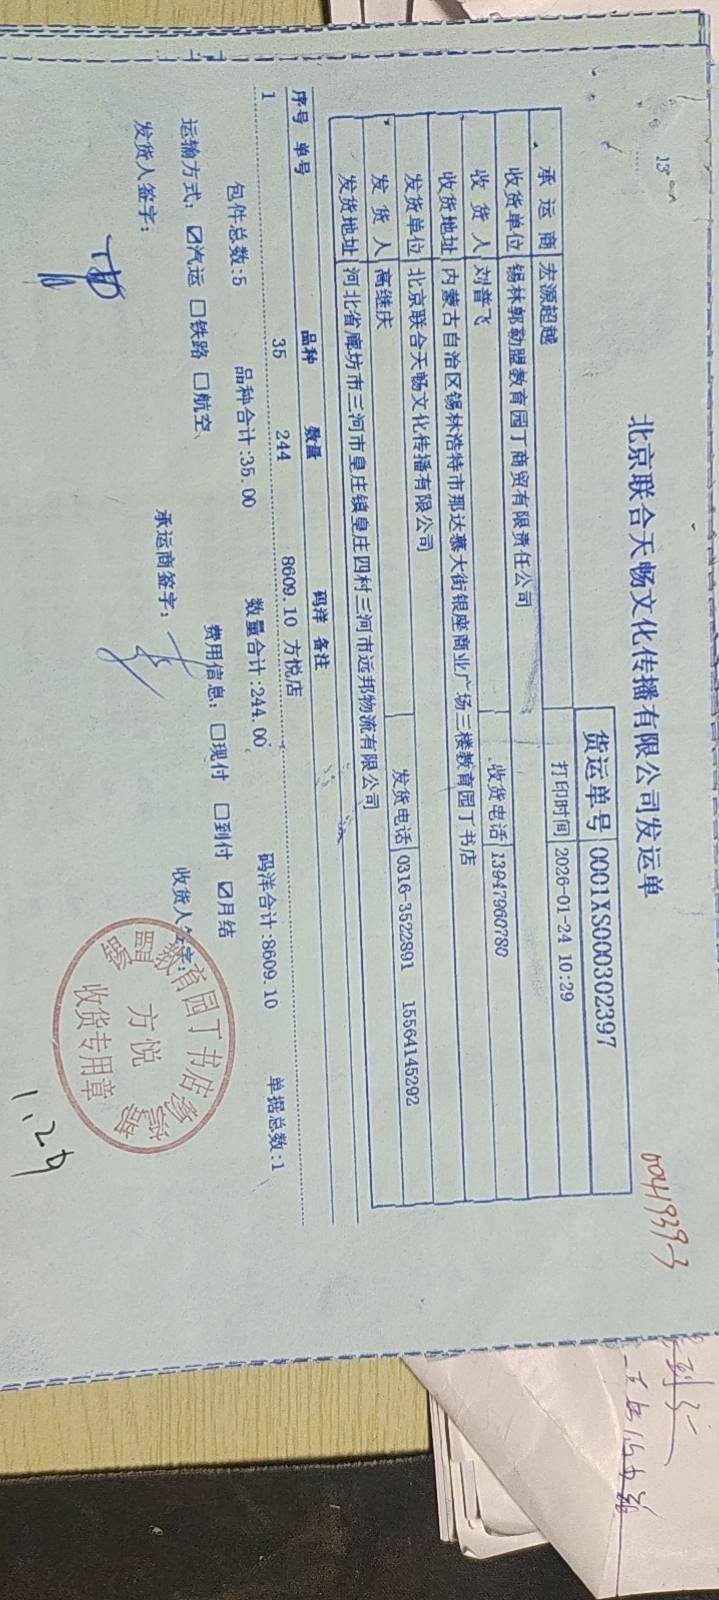 北京联合天畅文化传播有限公司发运单
0041939-3
货运单号 0001XS000302397
承运商 宏源超越 打印时间 2026-01-24 10:29
收货单位 锡林郭勒盟教育园丁商贸有限责任公司
收货人 刘普飞 收货电话 13947960780
收货地址 内蒙古自治区锡林浩特市那达慕大街银座商业广场三楼教育园丁书店
发货单位 北京联合天畅文化传播有限公司
发货人 高继庆 发货电话 0316-3522891 15564145292
发货地址 河北省廊坊市三河市皇庄镇皇庄四村三河市远邦物流有限公司
序号 单号 品种 数量 码洋 备注
1 35 244 8609.10 方悦店
包件总数:5 品种合计:35.00 数量合计:244.00 码洋合计:8609.10 单据总数:1
运输方式: ☑汽运 ☐铁路 ☐航空、 费用信息: ☐现付 ☐到付 ☑月结
发货人签字: 承运商签字: 收货人签字:
方悦
收货专用章
1.29